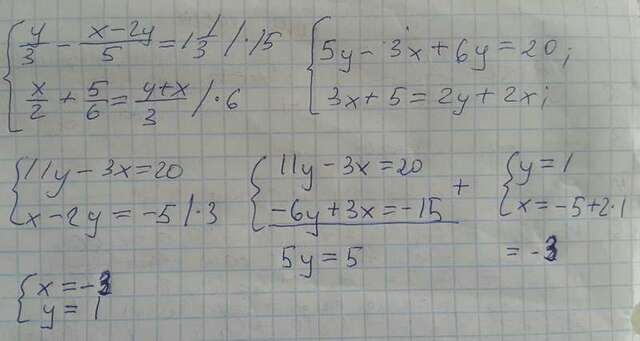 { y/3 - (x-2y)/5 = 1 1/3 /·15
x/2 + 5/6 = (y+x)/3 /·6
{ 5y - 3x + 6y = 20;
3x + 5 = 2y + 2x;
{ 11y - 3x = 20
x - 2y = -5 /·3
{ 11y - 3x = 20
-6y + 3x = -15 +
5y = 5
{ y = 1
x = -5 + 2·1
= -3
{ x = -3
y = 1